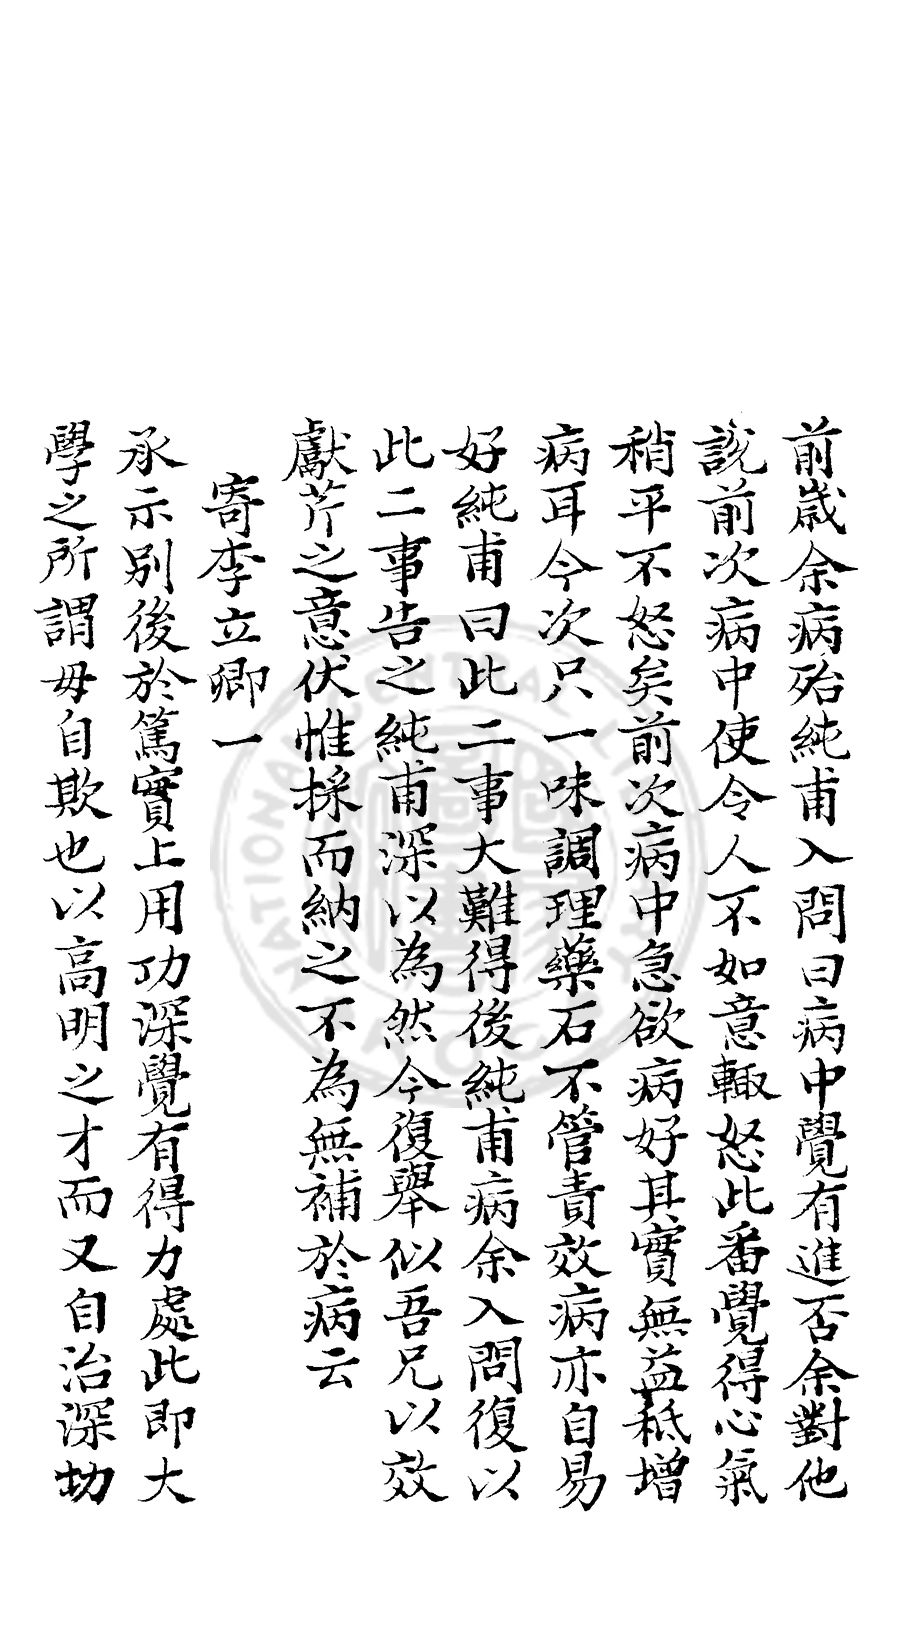 前歳余病殆純甫入問曰病中覺有進否余對他
說前次病中使令人不如意輙怒此番覺得心氣
稍平不怒矣前次病中急欲病好其實無益秪增
病耳今次只一味調理藥石不管責效病亦自易
好純甫曰此二事大難得後純甫病余入問復以
此二事告之純甫深以為然今復舉似吾兄以效
獻芹之意伏惟採而納之不為無補於病云
寄李立卿一
承示别後於篤實上用功深覺有得力處此即大
學之所謂毋自欺也以高明之才而又自治深切